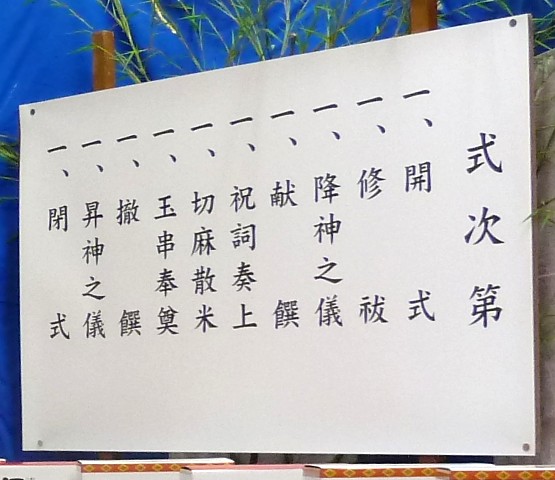 式次第
一、開式
一、修祓
一、降神之儀
一、献饌
一、祝詞奏上
一、切麻散米
一、玉串奉奠
一、撤饌
一、昇神之儀
一、閉式